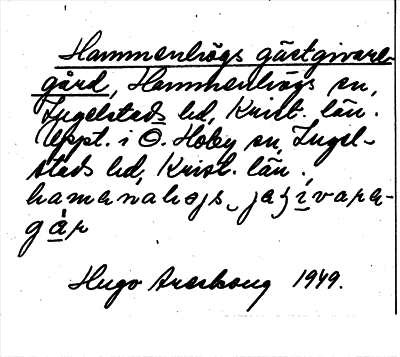 Hammenhögs gästgivare-
gård, Hammenhögs sn,
Ingelstads hd, Krist. län.
Uppt. i Ö. Hoby sn, Ingel-
stads hd, Krist. län.
hamənahøjs
går
Hugo Areskoug 1949.